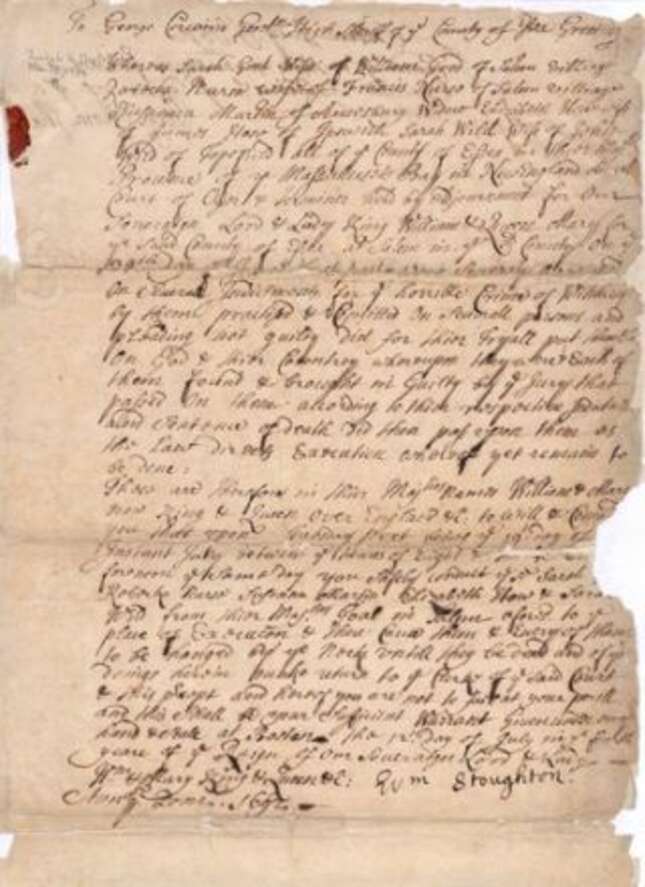 To George Corwine Gentlm high Sheriff of ye County of Essex Greeting
Whereas Sarah Good Wife of William Good of Salem Village
Rebecka Nurse wife of Francis Nurse of Salem Village
Susanna Martin of Amesbury Widow Elizabeth How wife
of James How of Ipswich Sarah Wild Wife of John
Wild of Topsfield all of ye County of Essex in
Province of ye Massachusetts Bay in New England
Court of Oyer & Terminer held by adjournment for Our
Soveraign Lord & Lady King William & Queen Mary for
ye said County of Essex at Salem in ye County on ye
were Severaly
on Severall Indictments for ye horrible Crime of Witchcraft
by them practised & Comitted On Severall persons and
pleading not guilty did for their Tryall put themselves
On God & their Countrey whereupon they were Each of
them found & brought in Guilty by ye Jury that
passed On them according to their respective Indictments
and Sentence of death did then pass upon them as
the Law directs Execution whereof yet remains to
be done:
Those are therefore in their Majties names William & Mary
now King & Queen over England &c: to will & Comand
you that upon Tuesday next being ye 19th day
Instant July between ye houres of Eight &
forenoon ye same day you Safely conduct ye sd Sarah
Rebecka Nurse Susanna Martin Elizabeth How & Sarah
Wild from their Majties Goal in Salem aforesd to ye
place of Execution & there Cause them & Every of them
to be hanged by ye Neck untill they be dead and of ye
doings herein make return to ye Clerke of ye said Court
& this precept and hereof you are not to fail at your perill
and this Shall be your Sufficient Warrant Given under my
hand & Seale at Boston the 12th day of July in ye fourth
yeare of ye Reign of Our Soveraigns Lord & Lady
Wm & Mary King & Queen &c: Wm Stoughton
Annoq Dom: 1692